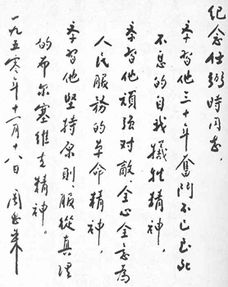 紀念任弼時同志，
學習他三十年奮鬥不已至死
不息的自我犧牲精神，
學習他頑強对敵，全心全意為
人民服務的革命精神，
學習他堅持原則，服從真理
的布尔塞維克精神。
一九五〇年十一月十八日 周恩来